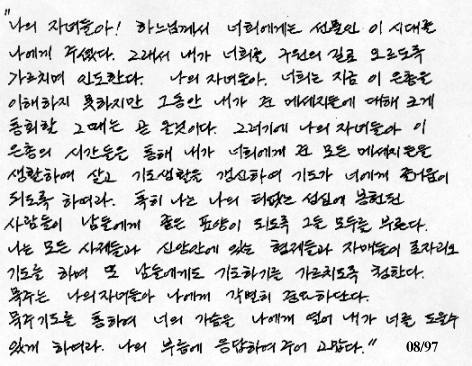 "
나의 자녀들아! 하느님께서 너희에게는 선물인 이 시대를
나에게 주셨다. 그래서 내가 너희를 구원의 길로 오르도록
가르치며 인도한다. 나의 자녀들아. 너희는 지금 이 은총을
이해하지 못하지만 그동안 내가 준 메세지들에 대해 크게
통회할 그때는 곧 올것이다. 그러기에 나의 자녀들아 이
은총의 시간들을 통해 내가 너희에게 준 모든 메세지들을
생활하며 살고 기도생활을 갱신하여 기도가 너에게 즐거움이
되도록 하여라. 특히 나는 나의 티없는 성심에 봉헌된
사람들이 남들에게 좋은 표양이 되도록 그들 모두를 부른다.
나는 모든 사제들과 신앙안에 있는 형제들과 자매들이 로자리오
기도를 하며 또 남들에게도 기도하기를 가르치도록 청한다.
묵주는 나의자녀들아 나에게 각별히 하단다.
묵주기도를 통하여 너의 가슴을 나에게 열어 내가 너를 도울수
있게 하여라. 나의 부름에 응답하여 주어 고맙다." 08/97